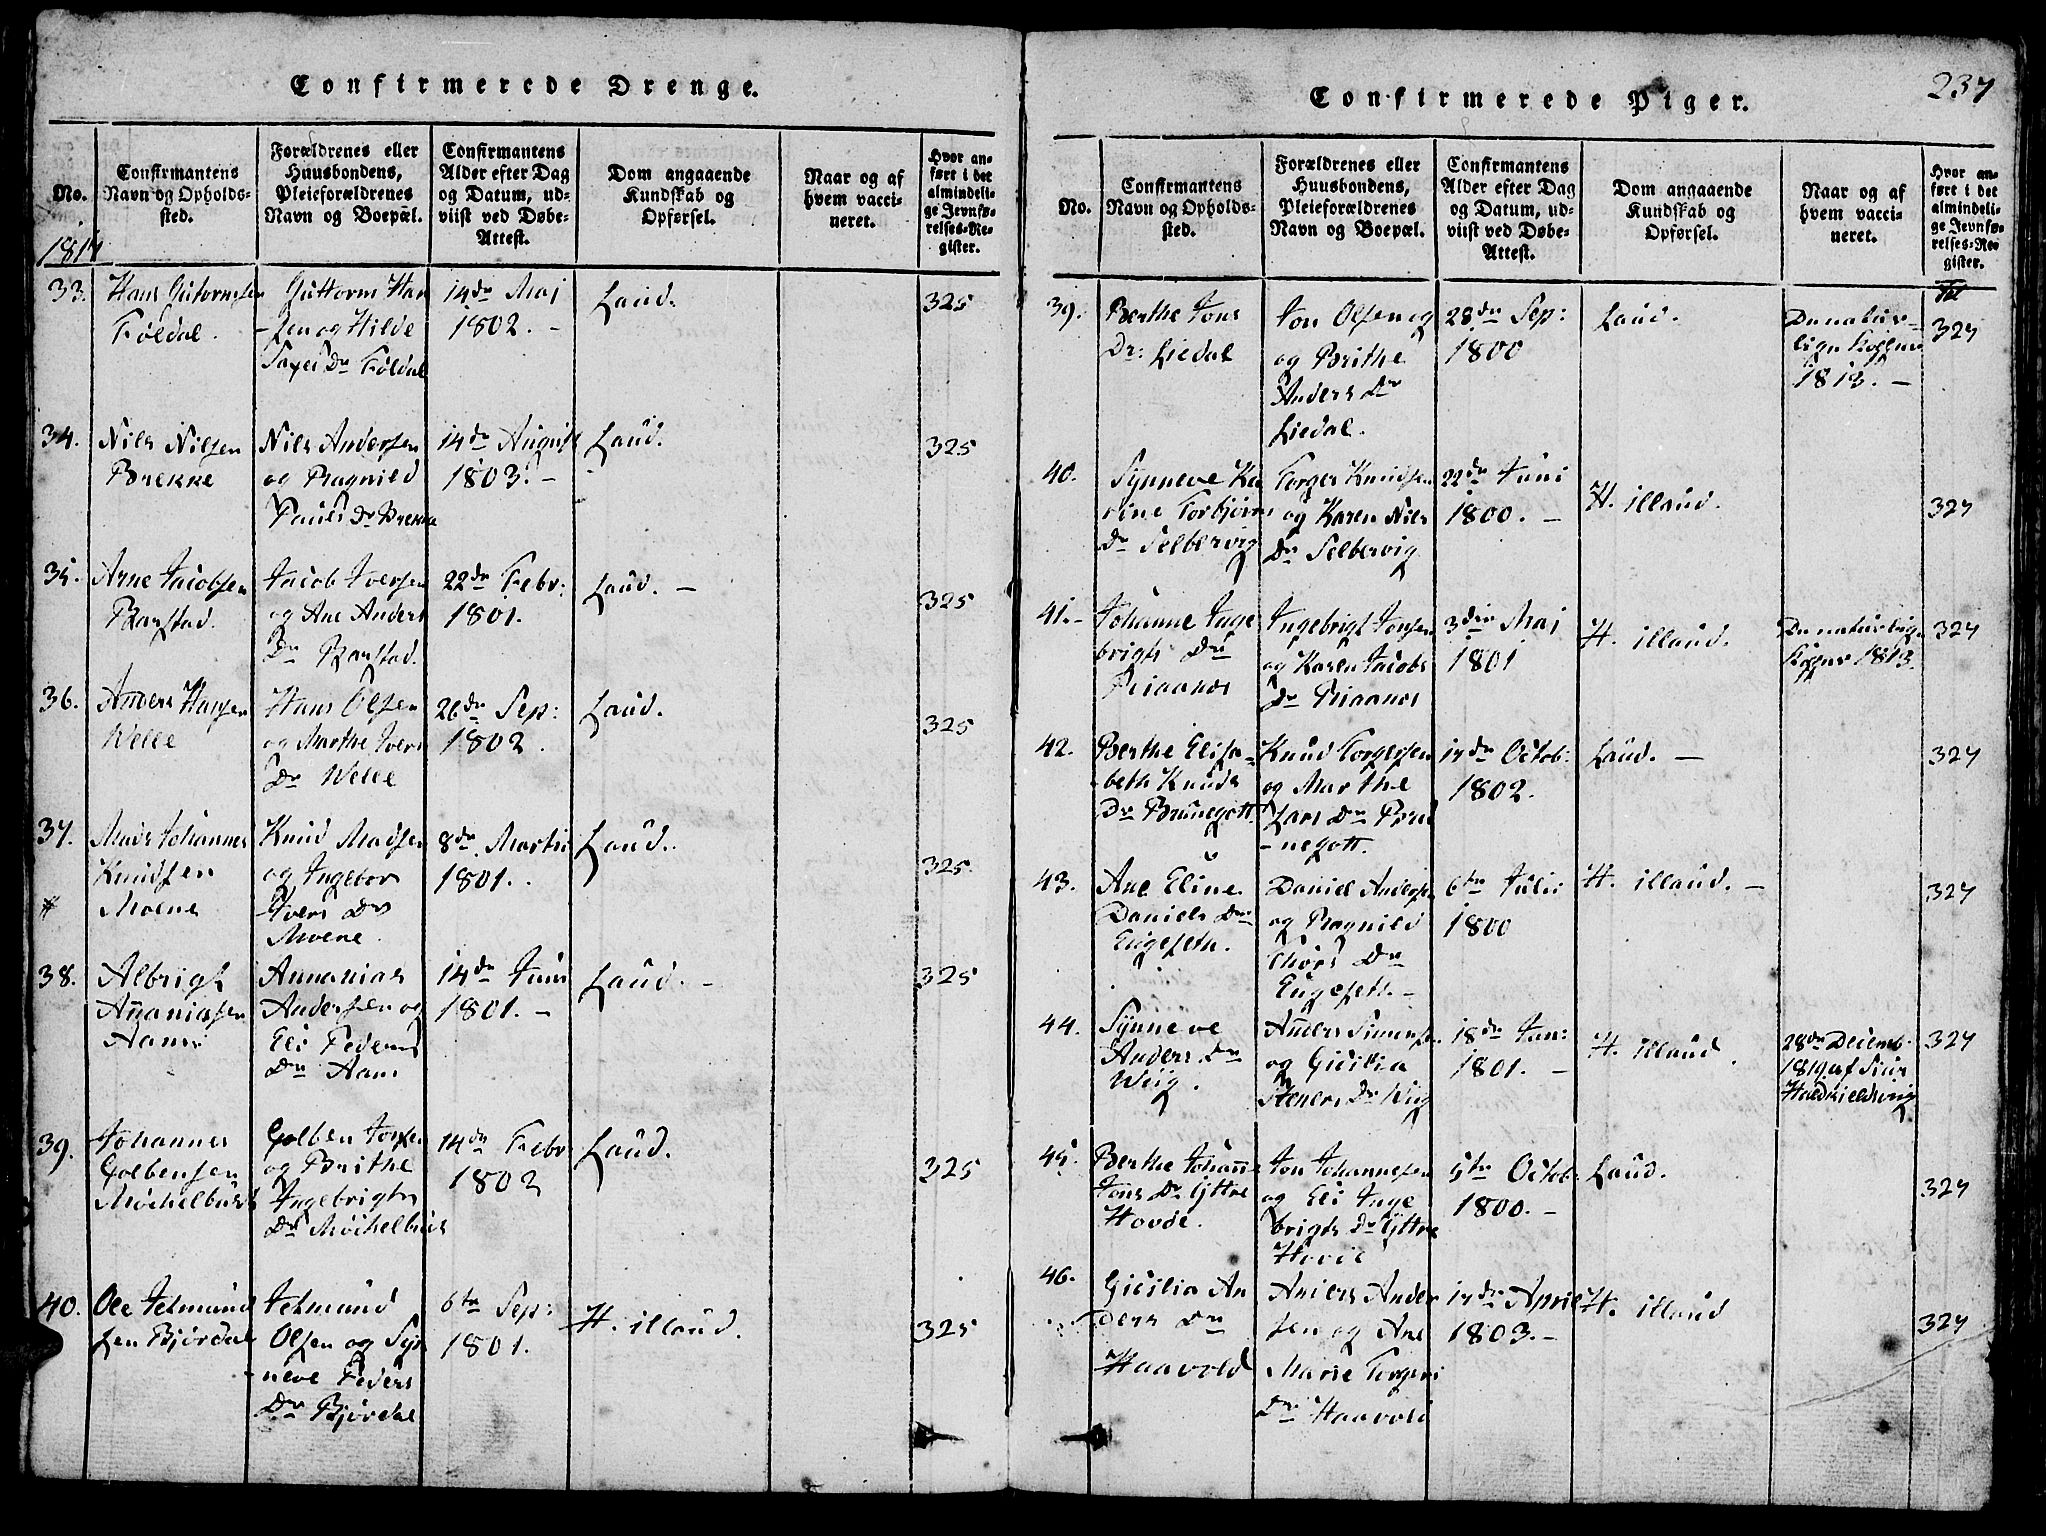 Confirmerede Drenge.
No.
Confirmantens
Navn og Opholds-
sted.
Forældrenes eller
Huusbondens,
Pleieforældrenes
Navn og Boepæl.
Confirmantens
Alder efter Dag
og Datum, ud-
viist ved Døbe-
Attest.
Dom angaaende
Kundskab og
Opførsel.
Naar og af
hvem vacci-
neret.
Hvor an-
ført i det
almindeli-
ge Jevnfø-
relses-Re-
gister.
33.
Hans Gutormsen
Føldal.
Guttorm Han
-sen og Hilde
Dr Føldal
14de Maj
1802. -
Laud.
325
34.
Nils Nilsen
Brekke
Nils Andersen
og Ragnild
Pauls Dr Brekke
14de August
1803. -
Laud.
325
35.
Arne Jacobsen
Barstad.
Jacob Iversen
og Ane Anders
Dr Barstad.
22de Febr:
1801.
Laud. -
325
36.
Anders Hansen
Welle
Hans Olsen
og Marthe Ivers
Dr Welle
26de Sep:
1802.
Laud.
325
37.
Mads Johannes
Knudsen
Moene
Knud Madsen
og Ingebor
Ivers Dr
Moene.
8de Martii
1801.
Laud.
325.
38.
Albrigt
Ananiasen
Aam
Annanias
Andersen og
Eli Peders
Dr Aam
14de Juni
1801. -
Laud. -
325
39.
Johannes
Golbensen
Møchelbust
Golben Jonsen
og Brithe
Ingebrigts
Dr Møchelbust
14de Febr
1802
Laud.
325
40.
Ole Jetmund
sen Bjørdal
Jetmund
Olsen og Syn
-neve Peders
Dr Bjørdal
6te Sep:
1801.
H. illaud.
325
Confirmerede Piger.
237
No.
Confirmantens
Navn og Opholds-
sted.
Forældrenes eller
Huusbondens,
Pleieforældrenes
Navn og Boepæl.
Confirmantens
Alder efter Dag
og Datum, ud-
viist ved Døbe-
Attest.
Dom angaaende
Kundskab og
Opførsel.
Naar og af
hvem vacci-
neret.
Hvor an-
ført i det
almindeli-
ge Jevnfø-
relses-Re-
gister.
39.
Berthe Jons
Dr: Liedal
Jon Olsen og
og Brithe
Anders Dr
Liedal.
28de Sep:
1800
Laud.
De natur-
lige Kopper
1813. -
327
40.
Synneve Ka
rine Torbjørns
Dr Selbervig
Torger Knudsen
og Karen Nils
Dr Selbervig
22de Juni
1800. -
H. illaud.
327
41. -
Johanne Inge
brigts Dr
Riaanes
Ingebrigt Jonsen
og Karen Jacobs
Dr Riaanes
3die Maj
1801
H. illaud.
De naturlige
Kopper 1813.
327
42.
Berthe Elisa-
beth Knuds
Dr Brunegott.
Knud Torgersen
og Marthe
Lars Dr Bru
-negott.
17de Octob:
1802.
Laud. -
327
43.
Ane Eline
Daniels Dr
Engeseth.
Daniel Andersen
og Ragnild
Thors Dr
Engeseth. -
6te Julii
1800
H. illaud. -
327
44.
Synneve
Anders Dr
Wiig.
Anders Simensen
og Gicilia
Steners Dr Wiig
18de Jan:
1801. -
H. illaud.
28de Decemb.
1810 af Siur
Holdkieldsvig
327
45.
Berthe Johanne
Jons Dr Yttre
Hovde.
Jon Johannesen
og Eli Inge
brigts Dr Yttre
Hovde
5te Octob:
1800. -
Laud.
327
46.
Gicilia An
ders Dr
Haavold
Anders Ander
sen og Ane
Marie Torgers
Dr Haavold
17de April
1803. -
H. illaud
327